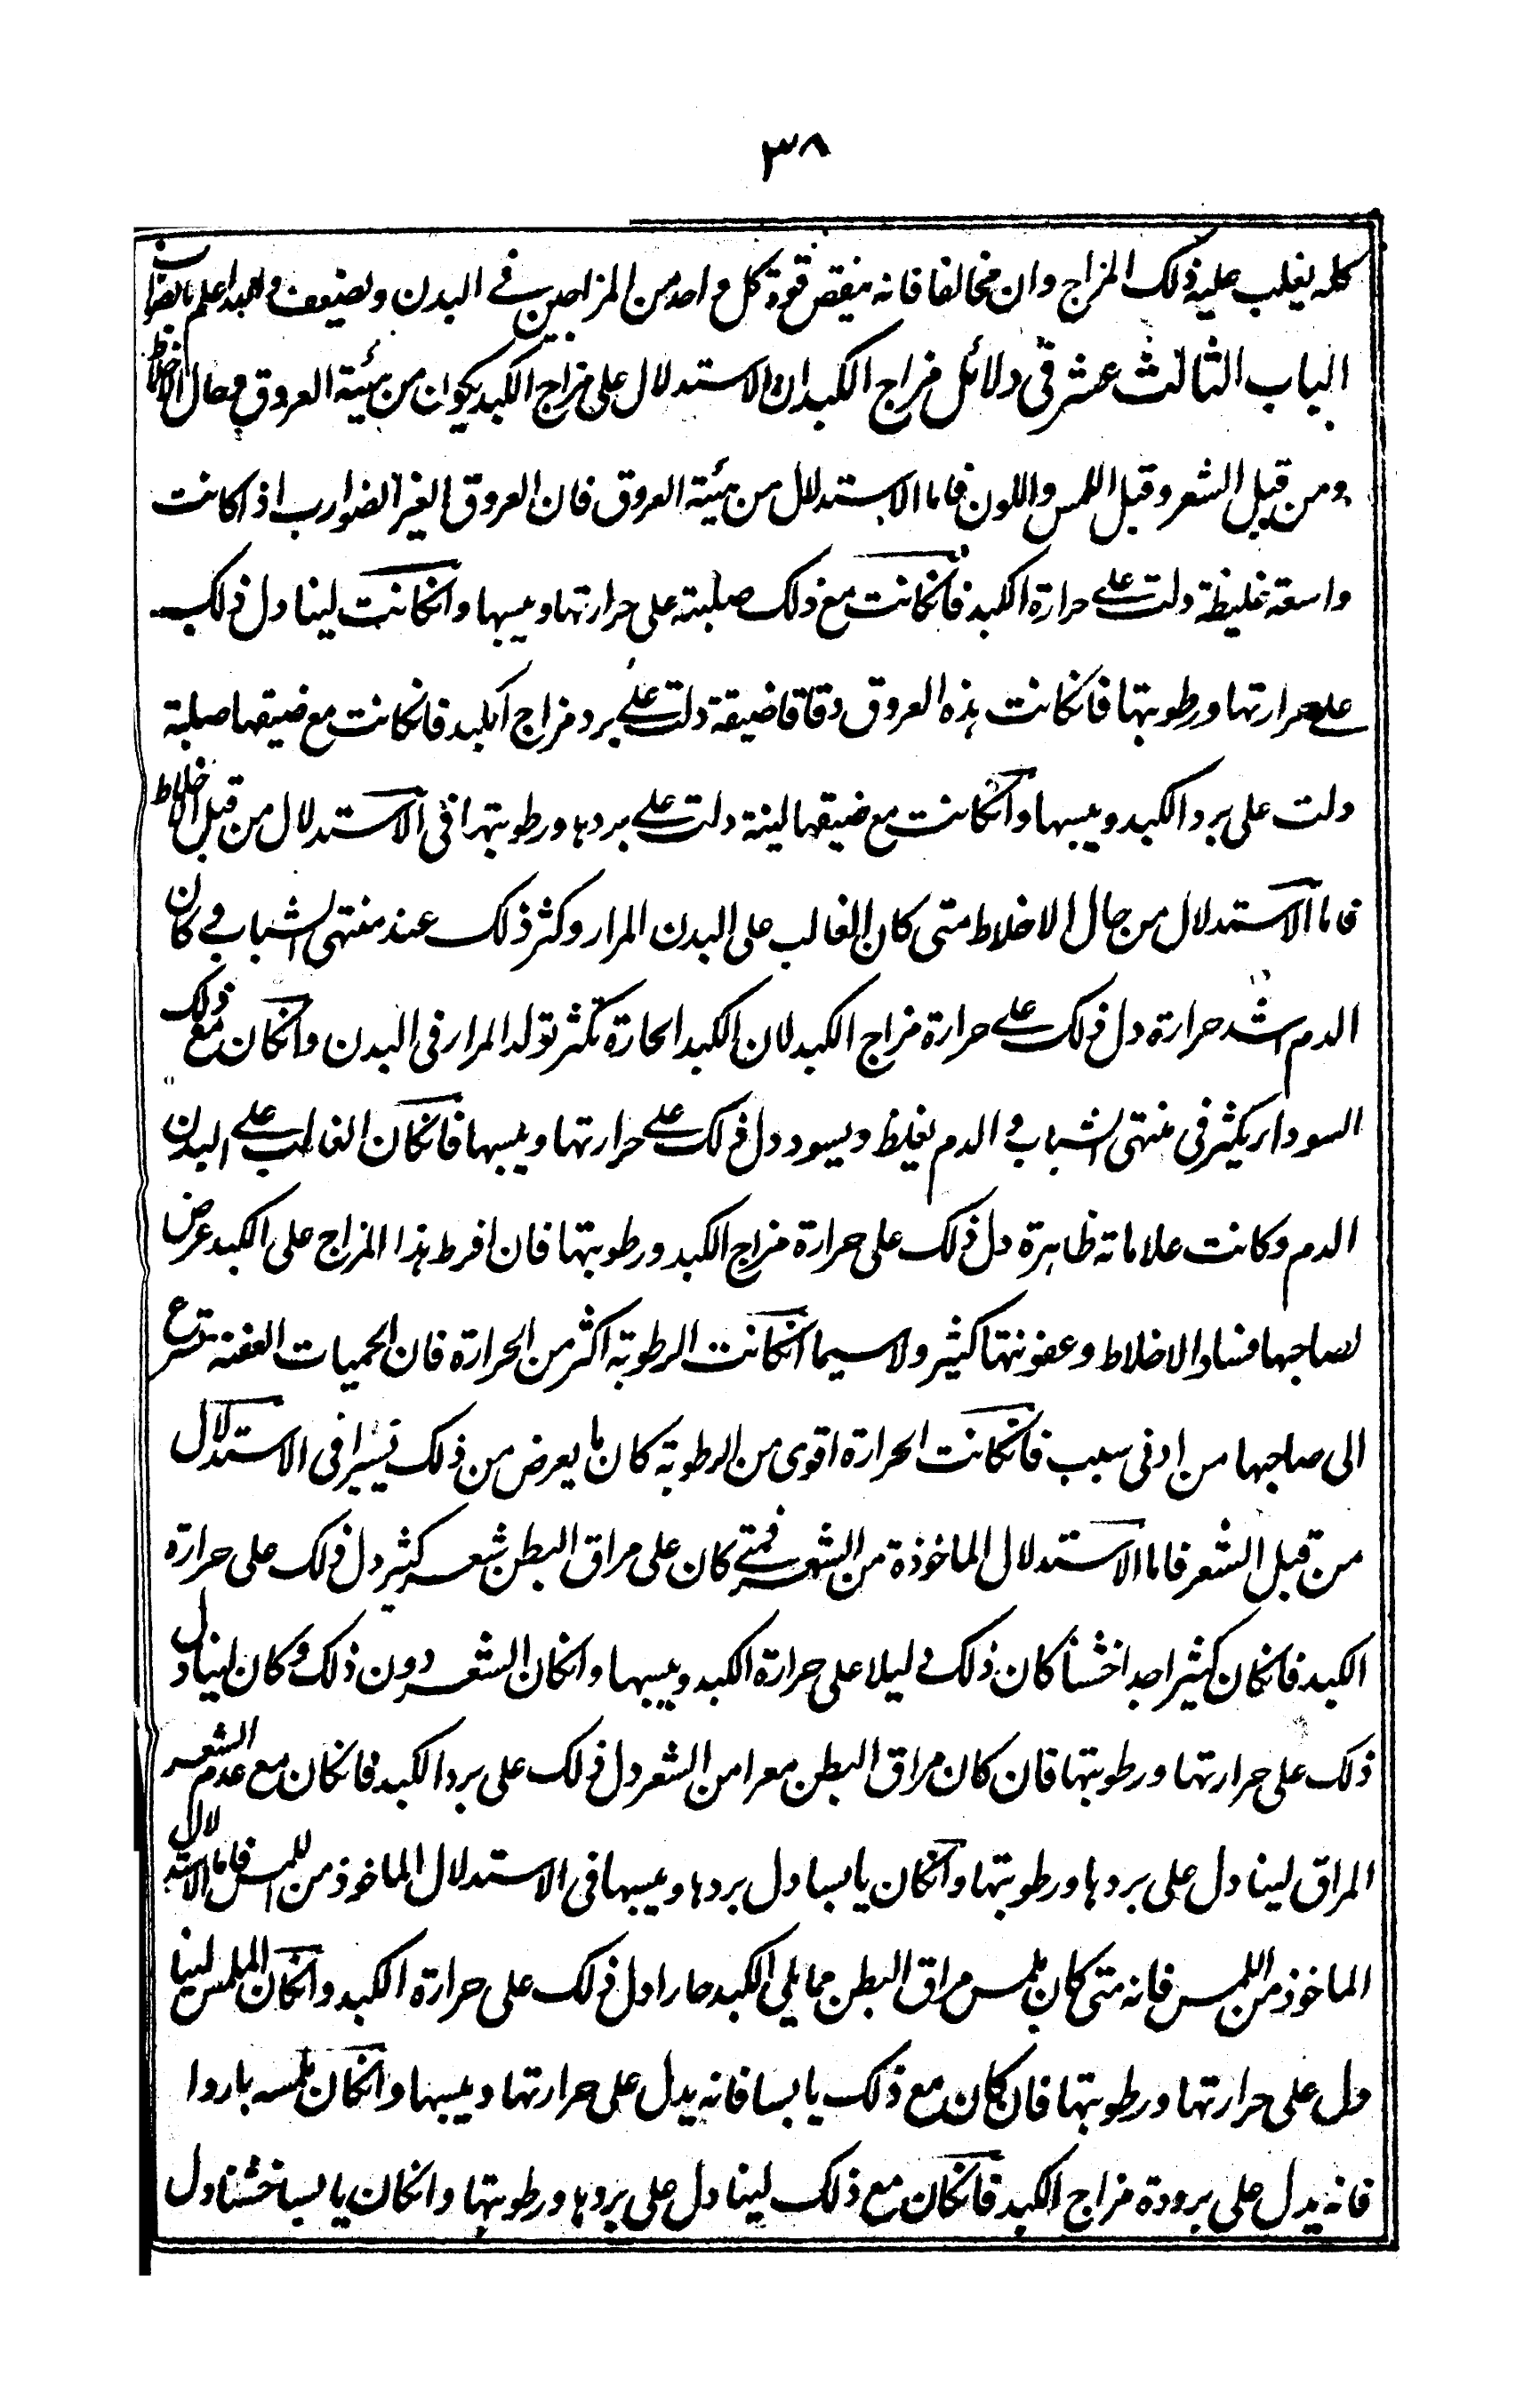 ٣٨
كله يغلب عليه ذلك المزاج وان مخالفا فانه ينقص قوة كل واحد من المزاجين في البدن ويضعف والله اعلم بالصواب
الباب الثالث عشر في دلائل مزاج الكبد ان الاستدلال على مزاج الكبد يكون من هيئة العروق وحال الاخلاط
ومن قبل الشعر وقبل اللمس واللون فاما الاستدلال من هيئة العروق فان العروق الغير الضوارب اذ اكانت
واسعة غليظة دلت على حرارة الكبد فانكانت مع ذلك صلبة على حرارتها ويبسها وانكانت لينا دل ذلك
على حرارتها ورطوبتها فانكانت هذه العروق دقاقا ضيقة دلت على برد مزاج الكبد فانكانت مع ضيقها صلبة
دلت على برد الكبد ويبسها وانكانت مع ضيقها لينة دلت على بردها ورطوبتها في الاستدلال من قبل الاخلاط
فاما الاستدلال من حال الاخلاط متى كان الغالب على البدن المرار وكثر ذلك عند منتهى الشباب وكان
الدم اشد حرارة دل ذلك على حرارة مزاج الكبد لان الكبد الحارة تكثر تولد المرار في البدن وانكان مع ذلك
السوداء يكثر في منتهى الشباب و الدم يغلظ ويسود دل ذلك على حرارتها ويبسها فانكان الغالب على البدن
الدم وكانت علاماته ظاهرة دل ذلك على حرارة مزاج الكبد ورطوبتها فان افرط هذا المزاج على الكبد عرض
لصاحبها فساد الاخلاط وعفونتها كثير ولاسيما انكانت الرطوبة اكثر من الحرارة فان الحميات العفنة تسرع
الى صاحبها من ادنى سبب فانكانت الحرارة اقوى من الرطوبة كان ما يعرض من ذلك يسيرا في الاستدلال
من قبل الشعر فاما الاستدلال الماخوذة من الشعر فمتى كان على مراق البطن شعر كثير دل ذلك على حرارة
الكبد فانكان كثيرا جدا خشنا كان ذلك دليلا على حرارة الكبد ويبسها وانكان الشعر دون ذلك وكان لينا دل
ذلك على حرارتها ورطوبتها فان كان مراق البطن معرا من الشعر دل ذلك على برد الكبد فانكان مع عدم الشعر
المراق لينا دل على بردها ورطوبتها وانكان يابسا دل بردها ويبسها في الاستدلال الماخوذ من اللمس فاما الاستدلال
الماخوذ من اللمس فانه متى كان ملمس مراق البطن مما يلي الكبد حارا دل ذلك على حرارة الكبد وانكان الملمس لينا
دل على حرارتها ورطوبتها فان كان مع ذلك يابسا فانه يدل على حرارتها ويبسها وانكان ملمسه باردا
فانه يدل على برودة مزاج الكبد فانكان مع ذلك لينا دل على بردها ورطوبتها وانكان يابسا خشنا دل